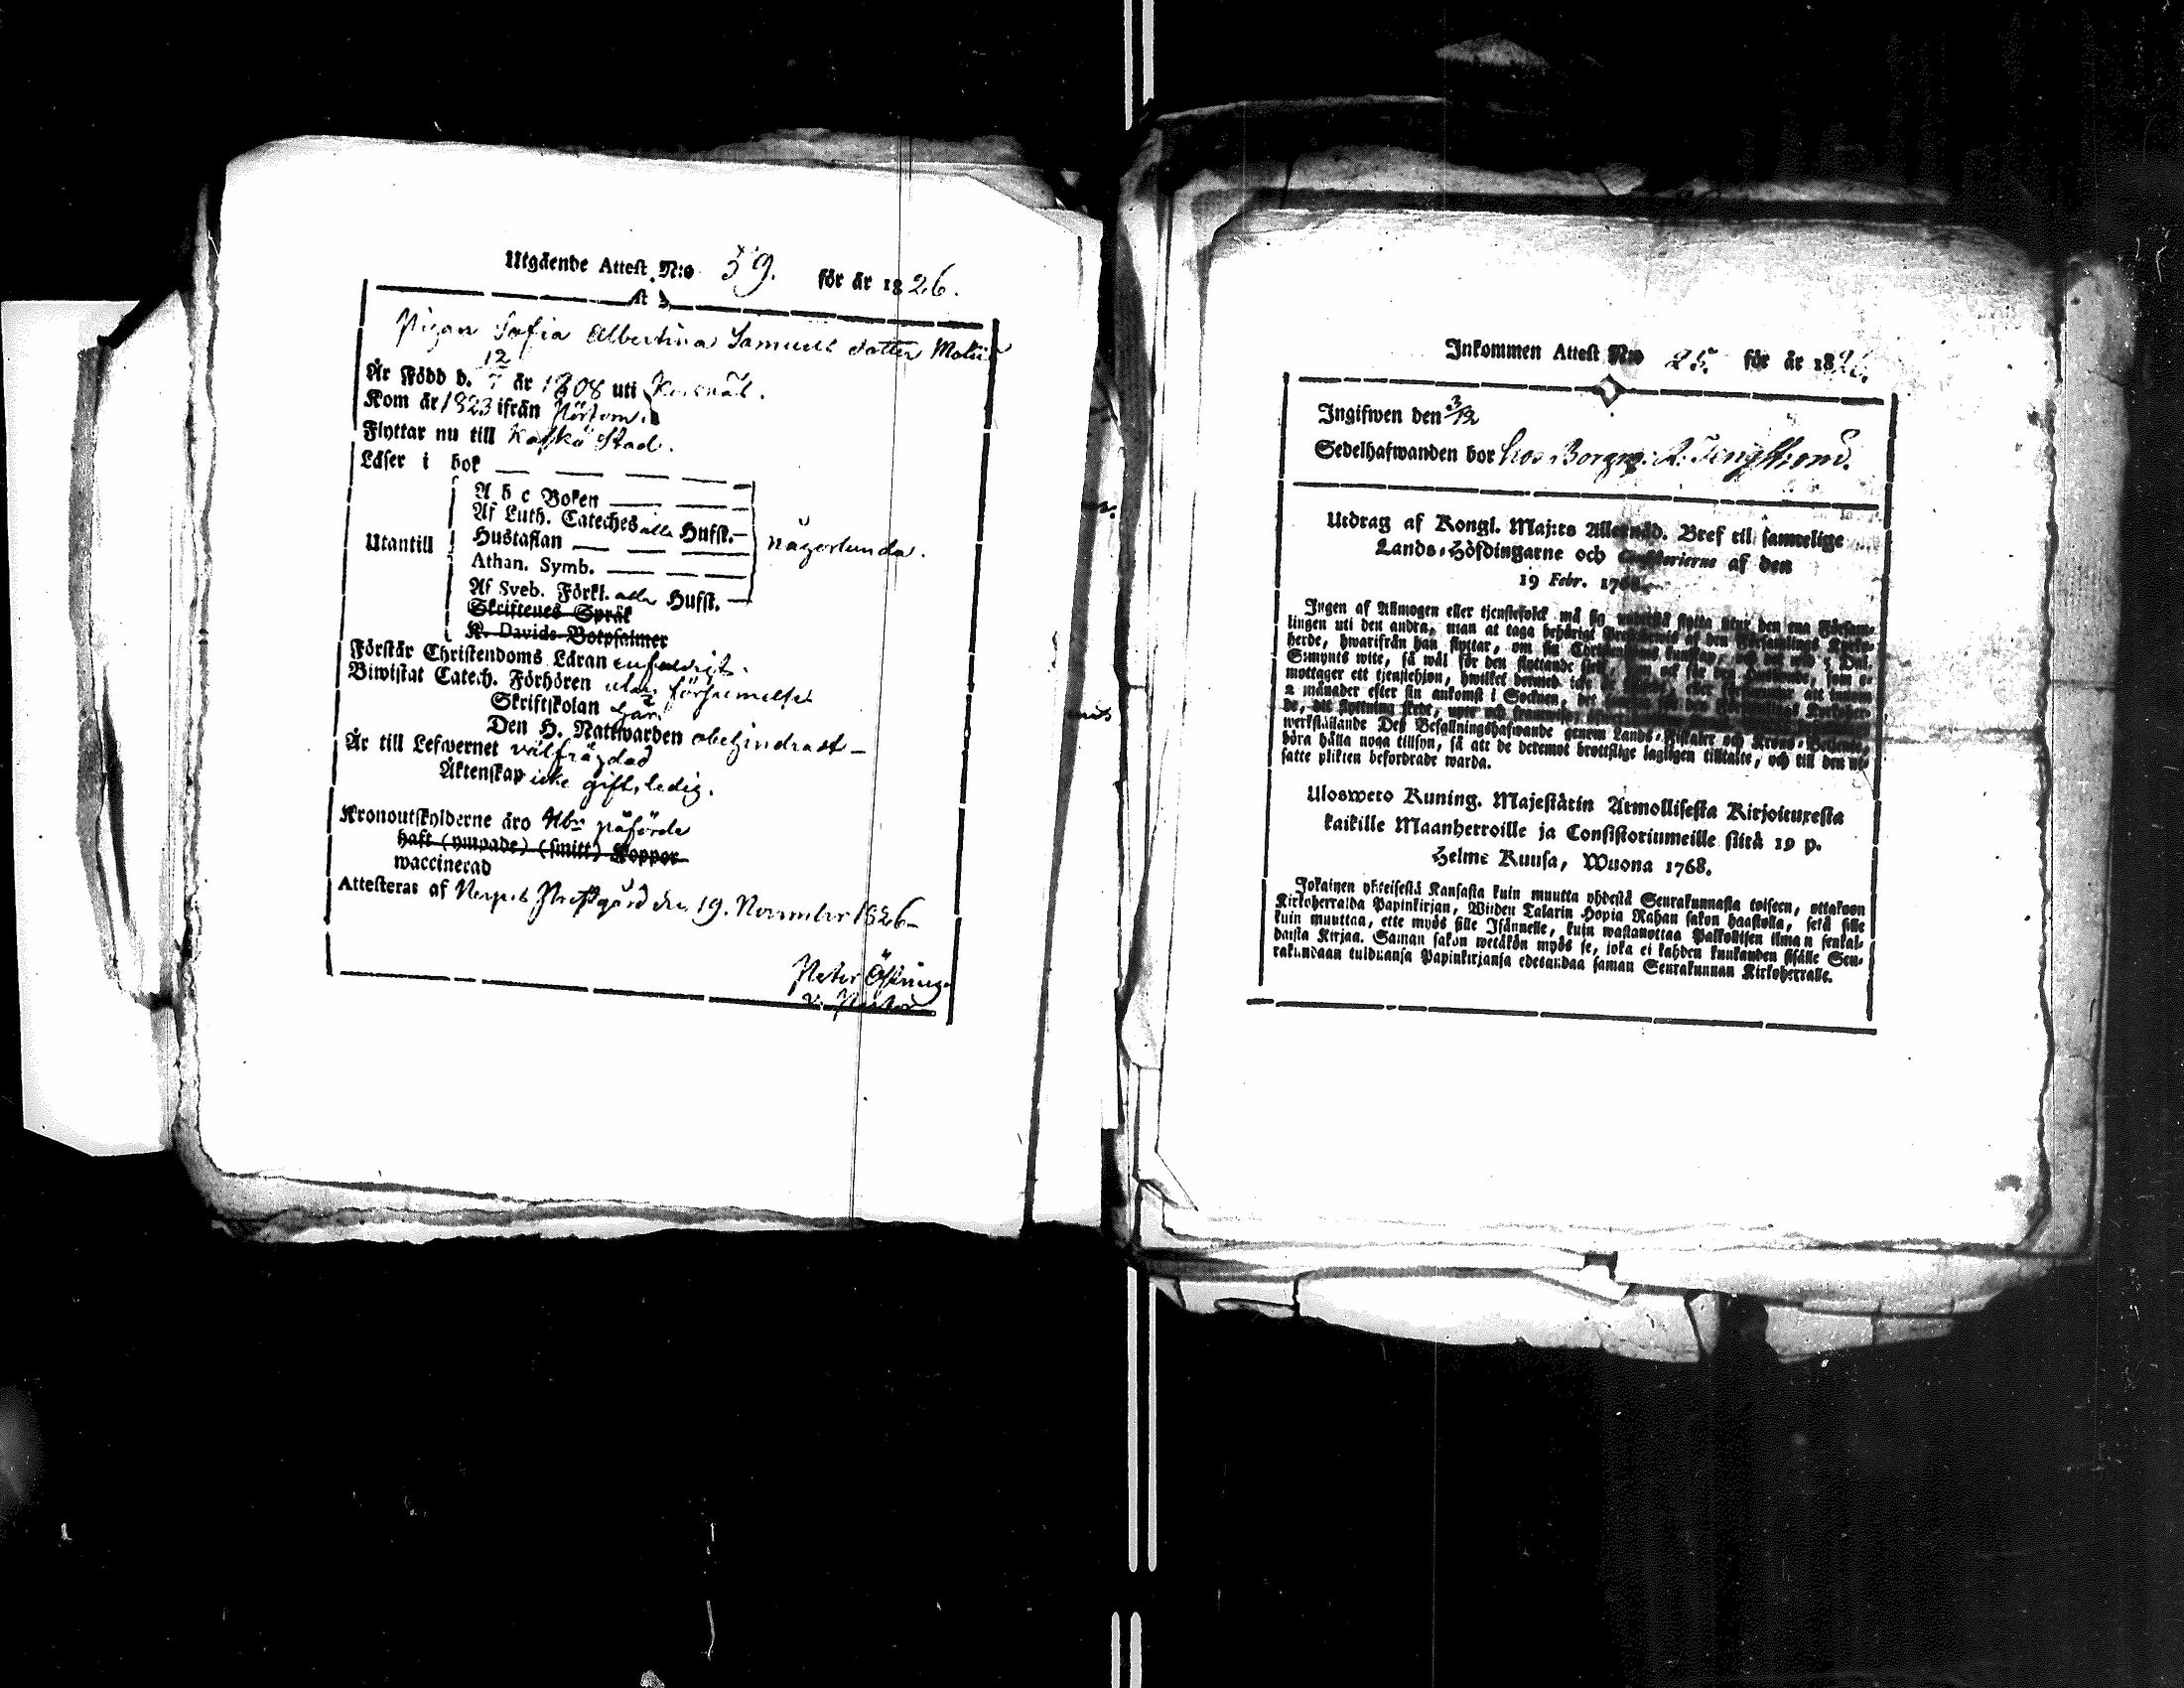 Utgående Attest N:o 59. för år 1826.
Pigan Sofia Albertina Samuels dotter
12
Är Född d. 7 år 1808 uti
Kom år 1823 ifrån Pörtom.
Flyttar nu till Kaskö Stad.
Läser i bok
A b c Boken
Af Luth. Cateches alla Hufst.
Hustaflan
Utantill
någorlunda.
Athan. Symb.
Af Sveb. Förkl. alla Hufst.
Skriftenes Språk
K. Davids Botpsalmer
Förstår Christendoms Läran enfaldigt.
Biwistat Catech. Förhören utan försummelse
Skriftskolan
Den H. Nattwarden obehindradt
Är till Lefwernet välfrägdad
Äktenskap icke gift, ledig.
Kronoutskylderne äro påförde
haft (ympade) (smitt) Koppor
waccinerad
Attesteras af Nerpes Prestgård den 19. November 1826
Peter
v. Pastor
Inkommen Attest N:o 25. för år 1826.
Ingifwen den 3/12
Sedelhafwanden bor hos Borgm. A. Tengström.
Utdrag af Kongl. Maj:ts Allernåd. Bref til samtelige
Lands-Höfdingarne och Consistorierne af den
19 Febr. 1768.
Ingen af Allmogen eller tjenstefolck må sig understå flytta utur den ena Försam-
lingen uti den andra, utan at taga behörigt af den Församlings Kyrko-
herde, hwarifrån han flyttar, om sin Christendoms kunskap, och det wid 5 Dal.
S:mynts wite, så wäl för den flyttande sielf, som ock för den Husbonde, som e-
mottager ett tjenstehjon, hwilket dermed icke är eller försummar att innom
2 månader efter sin ankomst i Socknen, det
de, dit flyttning skedt, upte och
werkställande Dess Befallningshafwande genom Lands-Fiskaler och Krono-Betjente,
böra hålla noga tillsyn, så att de deremot brottslige lagligen tilltalte, och till den ut-
satte plikten befordrade warda.
Uloswero Kuning. Majestätin Armollisesta Kirjoituxesta
kaikille Maanherroille ja Consistoriumeille siitä 19 p.
Helme Kuusa, Wuona 1768.
Jokainen yhteisestä Kansasta kuin muutta yhdestä Seurakunnasta toiseen, ottakoon
Kirkoherralda Papinkirjan, Wiiden Talarin Hopia Rahan sakon haastolla, sekä sille
kuin muuttaa, ette myös sille Isännelle, kuin wastanottaa Palkollisen ilman senkal-
daista Kirjaa. Saman sakon wetäkön myös se, joka ei kahden kuukauden sisälle Seu-
rakundaan tulduansa Papinkirjansa edesandaa saman Seurakunnan Kirkoherralle.